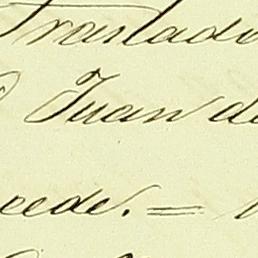 Traslado
Juan de
cede. =